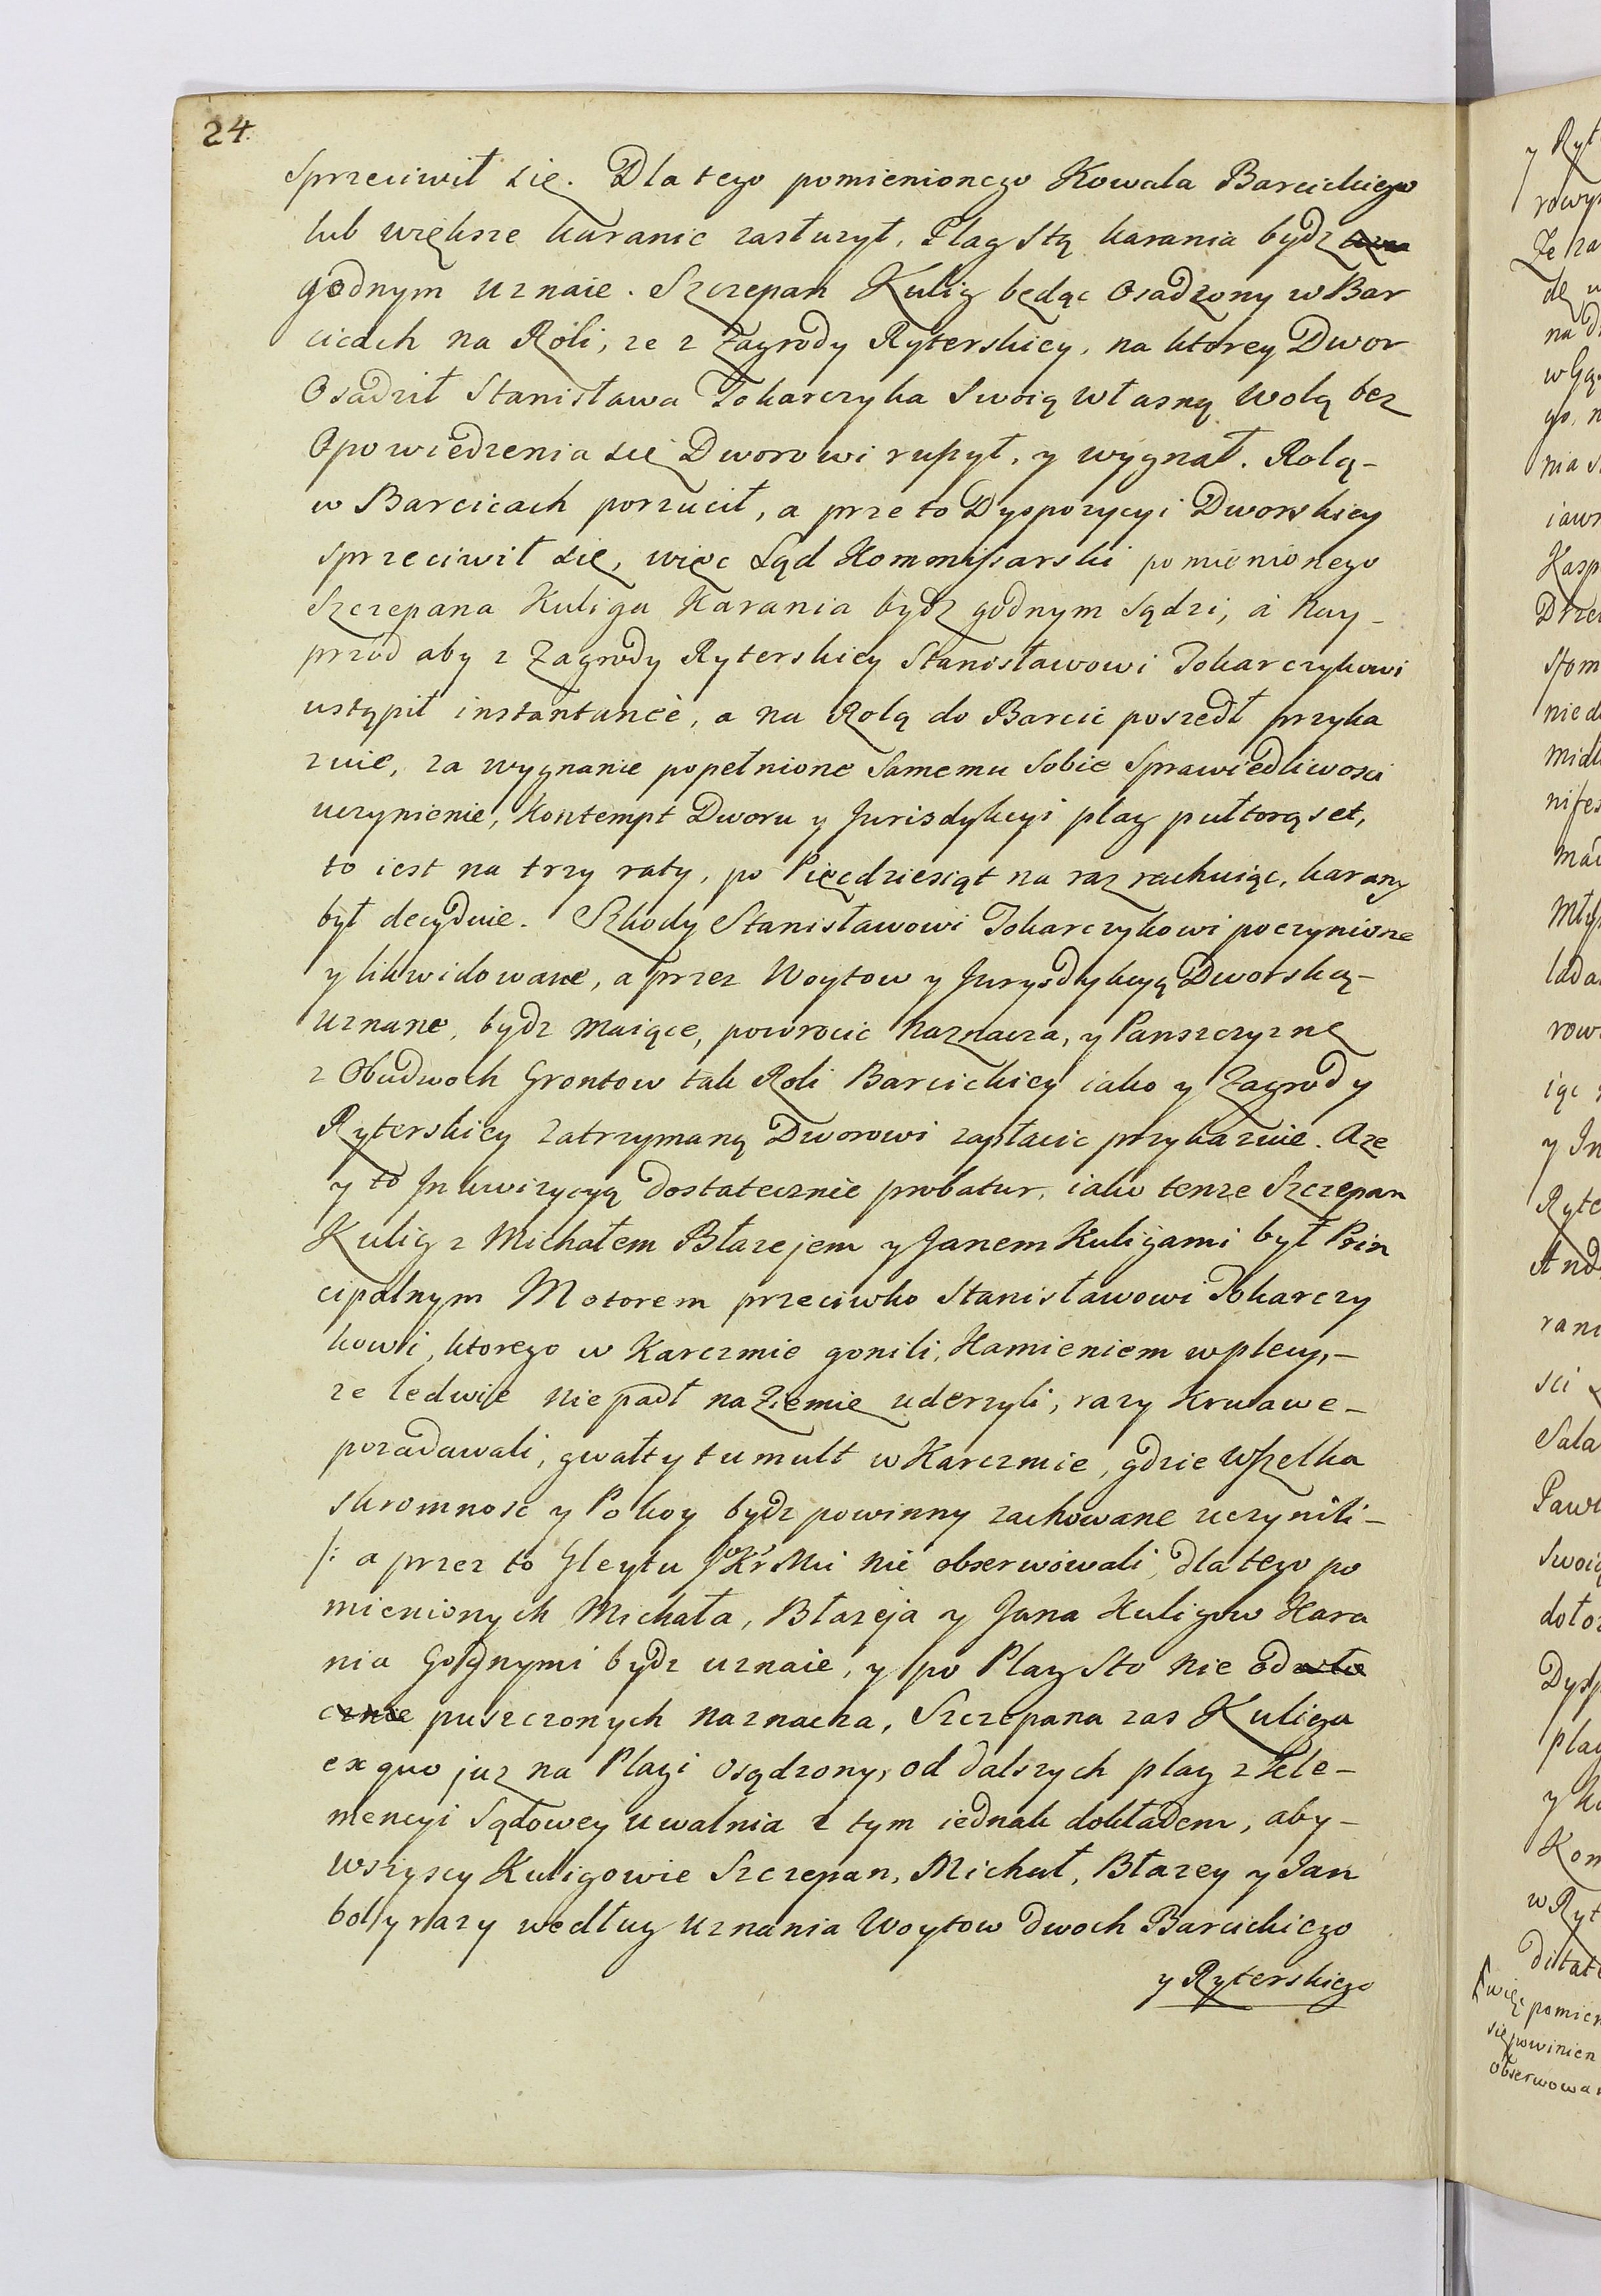 24.
Sprzeciwił się. Dla tego pomienionego Kowala Barcickiego
lub większe karanie zasłużył, Plag Stą karania bydz
godnym uznaie. Szczepan Kulig będąc Osadzony w Bar
cicach na Roli, ze z Zagrody Ryterskiey, na ktorey Dwor
Osadził Stanisława Tokarczyka Swoią własną wolą bez
Opowiedzenia się Dworowi ruszył, y wygnał. Rolą-
w Barcicach porzucił, a prze to Dyspozycyi Dworskiey
sprzeciwił się, więc Sąd Kommissarski pomienionego
Szczepana Kuliga Karania bydz godnym Sądzi, a nay-
przod aby z Zagrody Ryterskiey Stanisławowi Tokarczykowi
ustąpił instantaneè, a na Rolą do Barcic poszedł przyka
zuie, za wygnanie popełnione Samemu Sobie Sprawiedliwosci
uczynienie, Kontempt Dworu y Jurisdykcyi plag pułtorąset,
to iest na trzy raty, po Pięcdziesiąt na raz rachuiąc, karany
był decyduie. Szkody Stanisławowi Tokarczykowi poczynione
y likwidowane, a przez Woytow y Jurysdykcyą Dworską-
uznane, bydz maiące, powrocic naznacza, y Panszczyznę
z Obudwoch Grontow tak Roli Barcickiey iako y Zagrody
Ryterskiey zatrzymaną Dworowi zapłacic przykazuie. Aze
y to Inkwizycyą dostatecznie probatur, iako tenze Szczepan
Kulig z Michałem Błazejem y Janem Kuligami był Prin
cipalnym Motorem przeciwko Stanisławowi Tokarczy
kowi, ktorego w Karczmie gonili, Kamieniem w plecy,-
ze ledwie nie padł na Ziemię uderzyli, razy Krwawe-
pozadawali, gwałt y tumult w Karczmie, gdzie wszelka
skromnosc y Pokoy bydz powinny zachowane uczynili-
/: a przez to Gleytu JKrMci nie obserwowali, dla tego po
mienionych Michała, Błazeja y Jana Kuligow Kara
nia Godnymi bydz uznaie, y po Plag Sto nie od
puszczonych naznacza, Szczepana zas Kuliga
ex quo juz na Plagi osądzony, od dalszych plag z Kle-
mencyi Sądowey uwalnia z tym iednak dokładem, aby-
wszyscy Kuligowie Szczepan, Michał, Błazey y Jan
bol y razy według uznania Woytow dwoch Barcickiego
y Ryterskiego